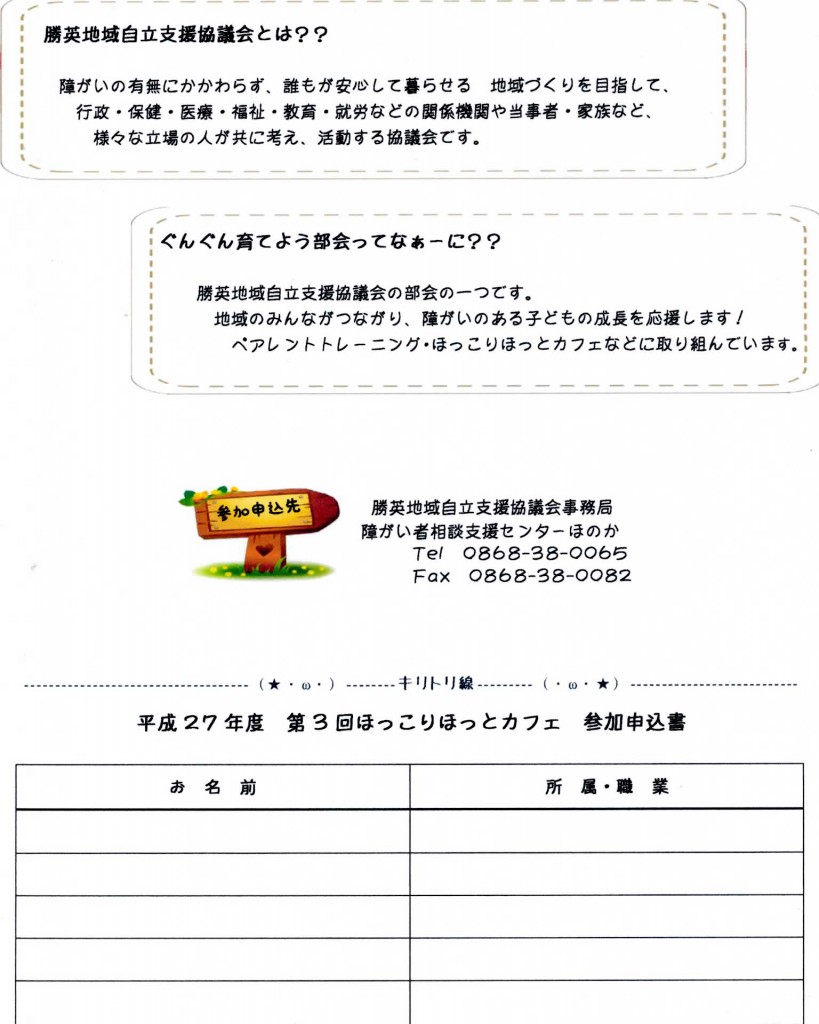 勝英地域自立支援協議会とは??
障がいの有無にかかわらず、誰もが安心して暮らせる　地域づくりを目指して、
行政・保健・医療・福祉・教育・就労などの関係機関や当事者・家族など、
様々な立場の人が共に考え、活動する協議会です。
ぐんぐん育てよう部会ってなぁーに??
勝英地域自立支援協議会の部会の一つです。
地域のみんながつながり、障がいのある子どもの成長を応援します!
ペアレントトレーニング・ほっこりほっとカフェなどに取り組んでいます。
参加申込先
勝英地域自立支援協議会事務局
障がい者相談支援センターほのか
Tel　0868-38-0065
Fax　0868-38-0082
(★・ω・) -------キリトリ線-------- (・ω・★)
平成27年度　第3回ほっこりほっとカフェ　参加申込書
お　名　前
所　属・職　業